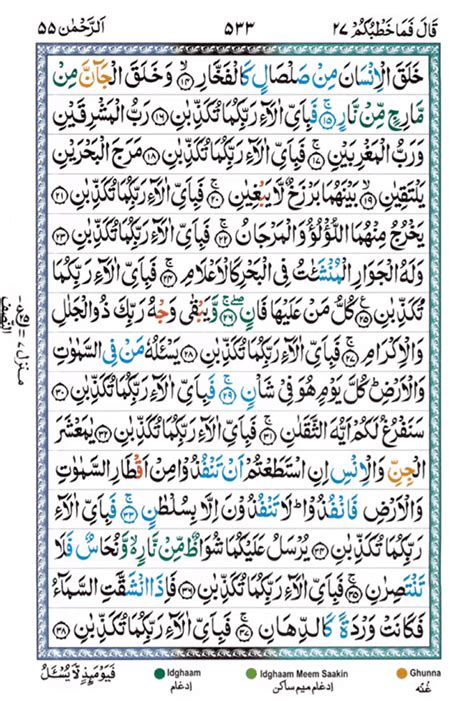 قَالَ فَمَا خَطْبُكُمْ ٢٧ ٥٣٣ اَلرَّحْمٰن ٥٥
خَلَقَ الْاِنْسَانَ مِنْ صَلْصَالٍ كَالْفَخَّارِ ۙ﴿۱۴﴾ وَخَلَقَ الْجَآنَّ مِنْ
مَّارِجٍ مِّنْ نَّارٍ ۚ﴿۱۵﴾ فَبِاَىِّ اٰلَآءِ رَبِّكُمَا تُكَذِّبٰنِ ﴿۱۶﴾ رَبُّ الْمَشْرِقَيْنِ
وَرَبُّ الْمَغْرِبَيْنِ ۚ﴿۱۷﴾ فَبِاَىِّ اٰلَآءِ رَبِّكُمَا تُكَذِّبٰنِ ﴿۱۸﴾ مَرَجَ الْبَحْرَيْنِ
يَلْتَقِيٰنِ ۙ﴿۱۹﴾ بَيْنَهُمَا بَرْزَخٌ لَّا يَبْغِيٰنِ ۚ﴿۲۰﴾ فَبِاَىِّ اٰلَآءِ رَبِّكُمَا تُكَذِّبٰنِ ﴿۲۱﴾
يَخْرُجُ مِنْهُمَا اللُّؤْلُؤُ وَالْمَرْجَانُ ۚ﴿۲۲﴾ فَبِاَىِّ اٰلَآءِ رَبِّكُمَا تُكَذِّبٰنِ ﴿۲۳﴾
وَلَهُ الْجَوَارِ الْمُنْشَئٰتُ فِى الْبَحْرِ كَالْاَعْلَامِ ۚ﴿۲۴﴾ فَبِاَىِّ اٰلَآءِ رَبِّكُمَا
تُكَذِّبٰنِ ﴿۲۵﴾ كُلُّ مَنْ عَلَيْهَا فَانٍ ۚۖ﴿۲۶﴾ وَّيَبْقٰى وَجْهُ رَبِّكَ ذُو الْجَلٰلِ
وَالْاِكْرَامِ ۚ﴿۲۷﴾ فَبِاَىِّ اٰلَآءِ رَبِّكُمَا تُكَذِّبٰنِ ﴿۲۸﴾ يَسْئَلُهٗ مَنْ فِى السَّمٰوٰتِ
وَالْاَرْضِؕ كُلَّ يَوْمٍ هُوَ فِىْ شَاْنٍ ۚ﴿۲۹﴾ فَبِاَىِّ اٰلَآءِ رَبِّكُمَا تُكَذِّبٰنِ ﴿۳۰﴾
سَنَفْرُغُ لَكُمْ اَيُّهَ الثَّقَلٰنِ ۚ﴿۳۱﴾ فَبِاَىِّ اٰلَآءِ رَبِّكُمَا تُكَذِّبٰنِ ﴿۳۲﴾ يٰمَعْشَرَ
الْجِنِّ وَالْاِنْسِ اِنِ اسْتَطَعْتُمْ اَنْ تَنْفُذُوْا مِنْ اَقْطَارِ السَّمٰوٰتِ
وَالْاَرْضِ فَانْفُذُوْاؕ لَا تَنْفُذُوْنَ اِلَّا بِسُلْطٰنٍ ۚ﴿۳۳﴾ فَبِاَىِّ اٰلَآءِ
رَبِّكُمَا تُكَذِّبٰنِ ﴿۳۴﴾ يُرْسَلُ عَلَيْكُمَا شُوَاظٌ مِّنْ نَّارٍ ۙ وَّنُحَاسٌ فَلَا
تَنْتَصِرٰنِ ۚ﴿۳۵﴾ فَبِاَىِّ اٰلَآءِ رَبِّكُمَا تُكَذِّبٰنِ ﴿۳۶﴾ فَاِذَا انْشَقَّتِ السَّمَآءُ
فَكَانَتْ وَرْدَةً كَالدِّهَانِ ۚ﴿۳۷﴾ فَبِاَىِّ اٰلَآءِ رَبِّكُمَا تُكَذِّبٰنِ ﴿۳۸﴾
فَيَوْمَئِذٍ لَّا يُسْئَلُ
Idghaam Idghaam Meem Saakin Ghunna
اِدغام اِدغام میم ساکن غُنّہ
منزل ٧